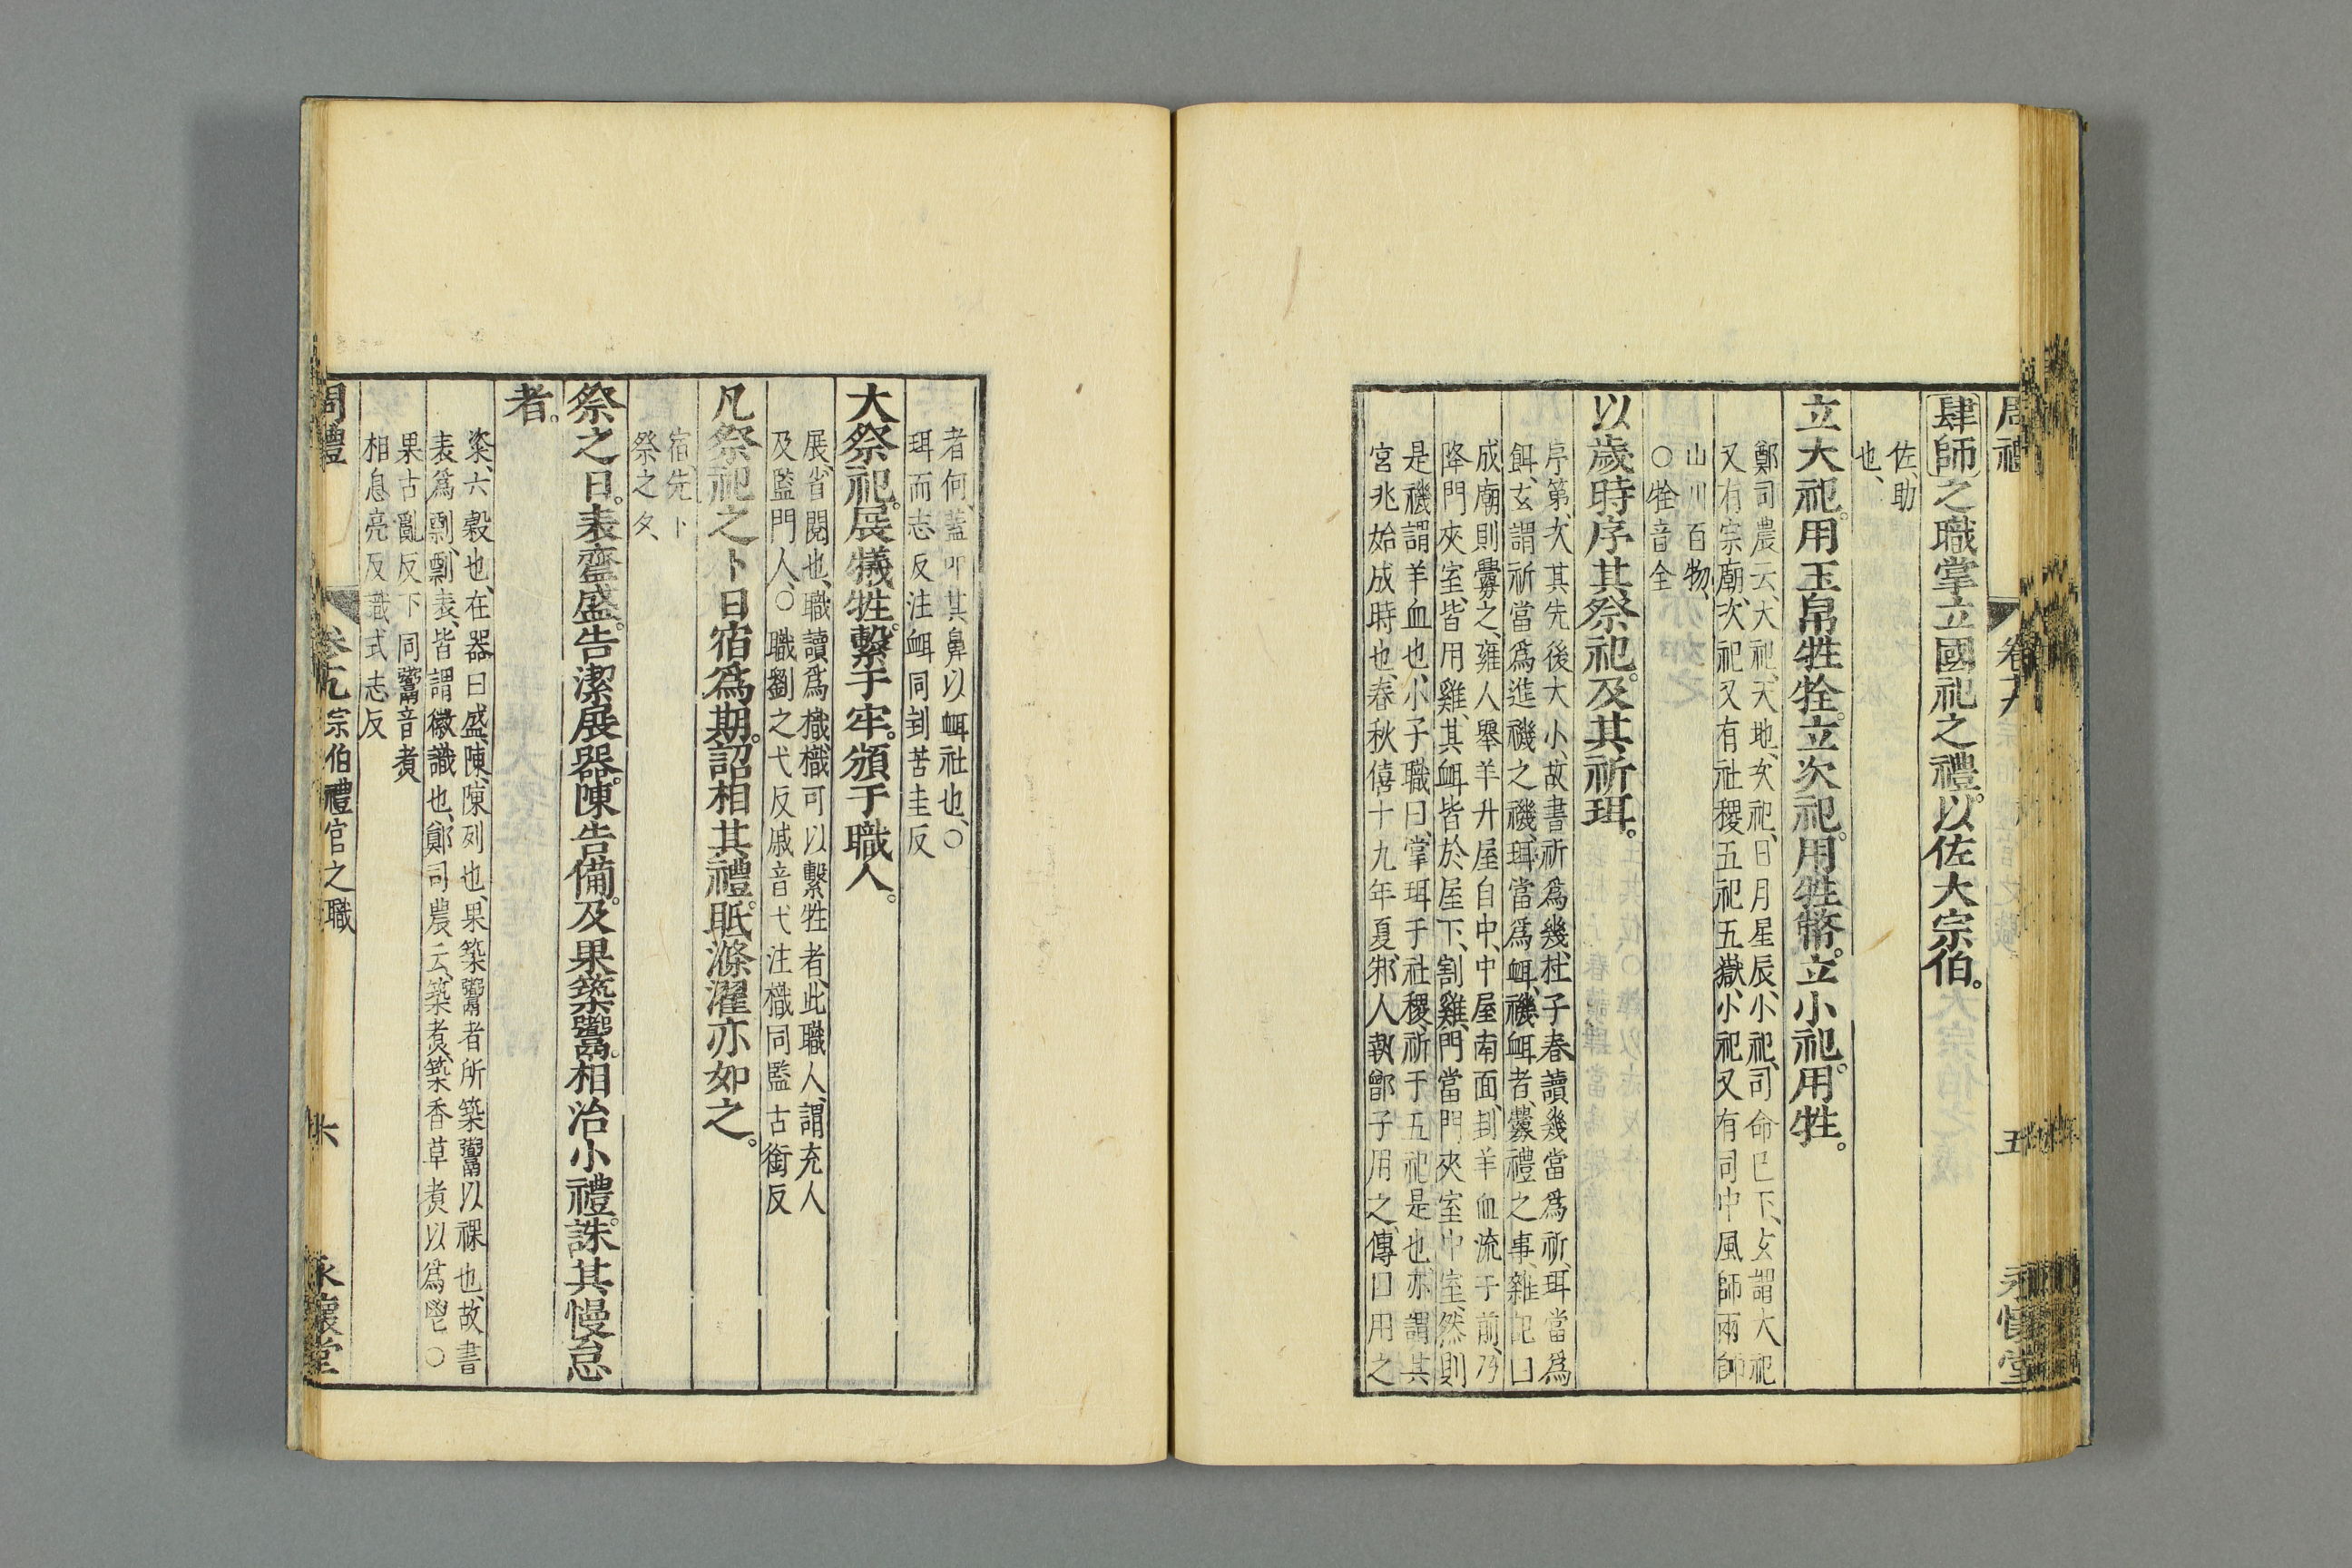 周禮 卷十九 五 永懷堂
肆師之職掌立國祀之禮。以佐大宗伯。
佐、助
也、
立大祀。用玉帛牲牷。立次祀。用牲幣。立小祀。用牲。
鄭司農云、大祀、天地、次祀、日月星辰、小祀、司命已下、玄謂大祀
又有宗廟、次祀又有社稷五祀五嶽、小祀又有司中風師雨師
山川百物、
○牷音全
以歲時序其祭祀。及其祈珥。
序第次其先後大小、故書祈爲幾、杜子春讀幾當爲祈、珥當爲
餌、玄謂祈當爲進禨之禨、珥當爲衈、禨衈者、釁禮之事、雜記曰
成廟則釁之、雍人舉羊升屋自中、中屋南面、刲羊血流于前、乃
降、門夾室皆用雞、其衈皆於屋下、割雞、門當門、夾室中室、然則
是禨謂羊血也、小子職曰、掌珥于社稷、祈于五祀是也、亦謂其
宮兆始成時也、春秋僖十九年夏、邾人執鄫子用之、傳曰用之
者何、蓋叩其鼻以衈社也、○
珥而志反注衈同刲苦圭反
大祭祀。展犧牲。繫于牢。頒于職人。
展、省閱也、職讀爲樴、樴可以繫牲者、此職人、謂充人
及監門人、○職劉之弋反戚音弋注樴同監古銜反
凡祭祀之卜日宿爲期。詔相其禮。眡滌濯亦如之。
宿、先卜
祭之夕、
祭之日。表齍盛。告潔展器。陳告備。及果築鬻。相治小禮。誅其慢怠
者。
粢、六穀也、在器曰盛、陳、陳列也、果築鬻者、所築鬻以祼也、故書
表爲剽、剽、表、皆謂徽識也、鄭司農云、築煮、築香草、煮以爲鬯○
果古亂反下同鬻音煮
相息亮反識式志反
周禮 卷十九 宗伯禮官之職 六 永懷堂